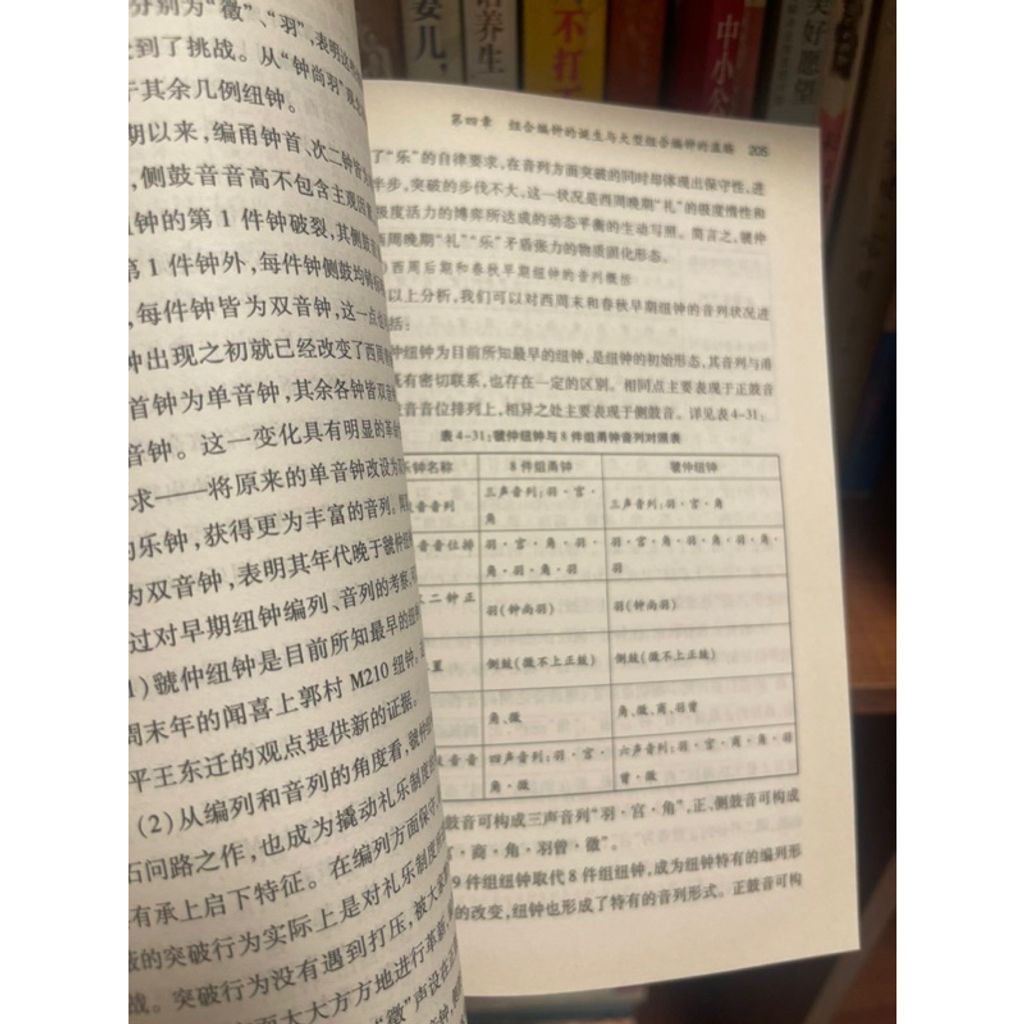 姜儿，
培养生
不打
中小公
美好愿望
分别为“徵”、“羽”，表明这
到了挑战。从“钟尚羽”观
其余几例纽钟。
期以来，编甬钟首、次二钟皆为
，侧鼓音音高不包含主观因
钟的第1件钟破裂，其侧鼓
第1件钟外，每件钟侧鼓均
，每件钟皆为双音钟，这一点也
钟出现之初就已经改变了西周
首钟为单音钟，其余各钟皆双音
音钟。这一变化具有明显的革
求——将原来的单音钟改设为
的乐钟，获得更为丰富的音列。
为双音钟，表明其年代晚于虢仲纽
过对早期纽钟编列、音列的考察，
1）虢仲纽钟是目前所知最早的纽
周末年的闻喜上郭村M210纽钟。
平王东迁的观点提供新的证据。
（2）从编列和音列的角度看，虢仲
石问路之作，也成为撬动礼乐制度
有承上启下特征。在编列方面保守，
的突破行为实际上是对礼乐制度
战。突破行为没有遇到打压，被大
大大方方地进行革新，
“徵”声设在正
第四章 组合编钟的诞生与大型组合编钟的滥觞 205
了“乐”的自律要求，在音列方面突破的同时却体现出保守性，进
半步，突破的步伐不大，这一状况是西周晚期“礼”的极度惰性和
极度活力的博弈所达成的动态平衡的生动写照。简言之，虢仲
西周晚期“礼”“乐”矛盾张力的物质固化形态。
）西周后期和春秋早期纽钟的音列概括
以上分析，我们可以对西周末和春秋早期纽钟的音列状况进
括：
仲纽钟为目前所知最早的纽钟，是纽钟的初始形态，其音列与甬
既有密切联系，也存在一定的区别。相同点主要表现于正鼓音
音音位排列上，相异之处主要表现于侧鼓音。详见表4-31：
表4-31：虢仲纽钟与8件组甬钟音列对照表
乐钟名称 8件组甬钟 虢仲纽钟
鼓音音列 三声音列：羽·宫·角 三声音列：羽·宫·角
音音位排 羽·宫·角·羽·角·羽·角·羽 羽·宫·角·羽·角·羽·角·羽
二钟正 羽（钟尚羽） 羽（钟尚羽）
置 侧鼓（徵不上正鼓） 侧鼓（徵不上正鼓）
角、徵 角、徵、商、羽曾
鼓音音 四声音列：羽·宫·角·徵 六声音列：羽·宫·商·角·羽曾·徵
鼓音可构成三声音列“羽·宫·角”，正、侧鼓音可构成
宫·商·角·羽曾·徵”。
9件组纽钟取代8件组纽钟，成为纽钟特有的编列形
的改变，纽钟也形成了特有的音列形式。正鼓音可构